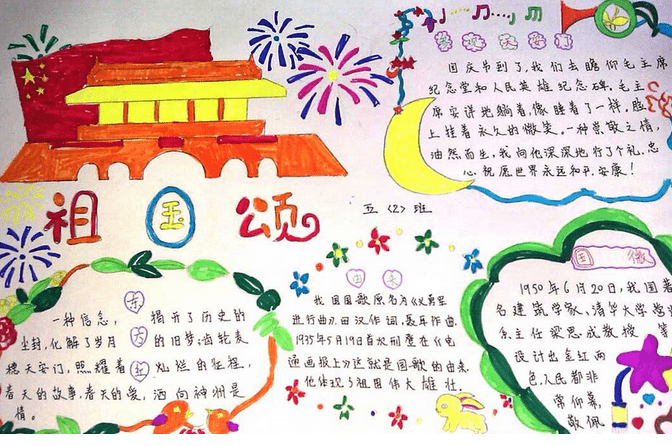 参观天安门
国庆节到了,我们去瞻仰毛主席
纪念堂和人民英雄纪念碑。毛主
席安详地躺着,像睡着了一样。脸
上挂着永久的微笑。一种崇敬之情,
油然而生,我向他深深地行了个礼。忠
心祝愿世界永远和平、安康!
祖国颂
五〈2〉班
东方红
一种信念, 揭开了历史的
尘封,化解了岁月 的旧梦;齿轮麦
穗天安门,照耀着 灿烂的征程,
春天的故事,春天的爱,洒向神州是
情。
由来
我国国歌原名为《义勇军
进行曲》,田汉作词,聂耳作曲.
1935年5月19日首次刊登在《电
通画报上》这就是国歌的由来.
他体现了祖国伟大雄壮.
国徽
1950年6月20日,我国著
名建筑学家、清华大学营
系主任梁思成教授
设计出金红两
色.人民都非
常仰慕,
敬佩